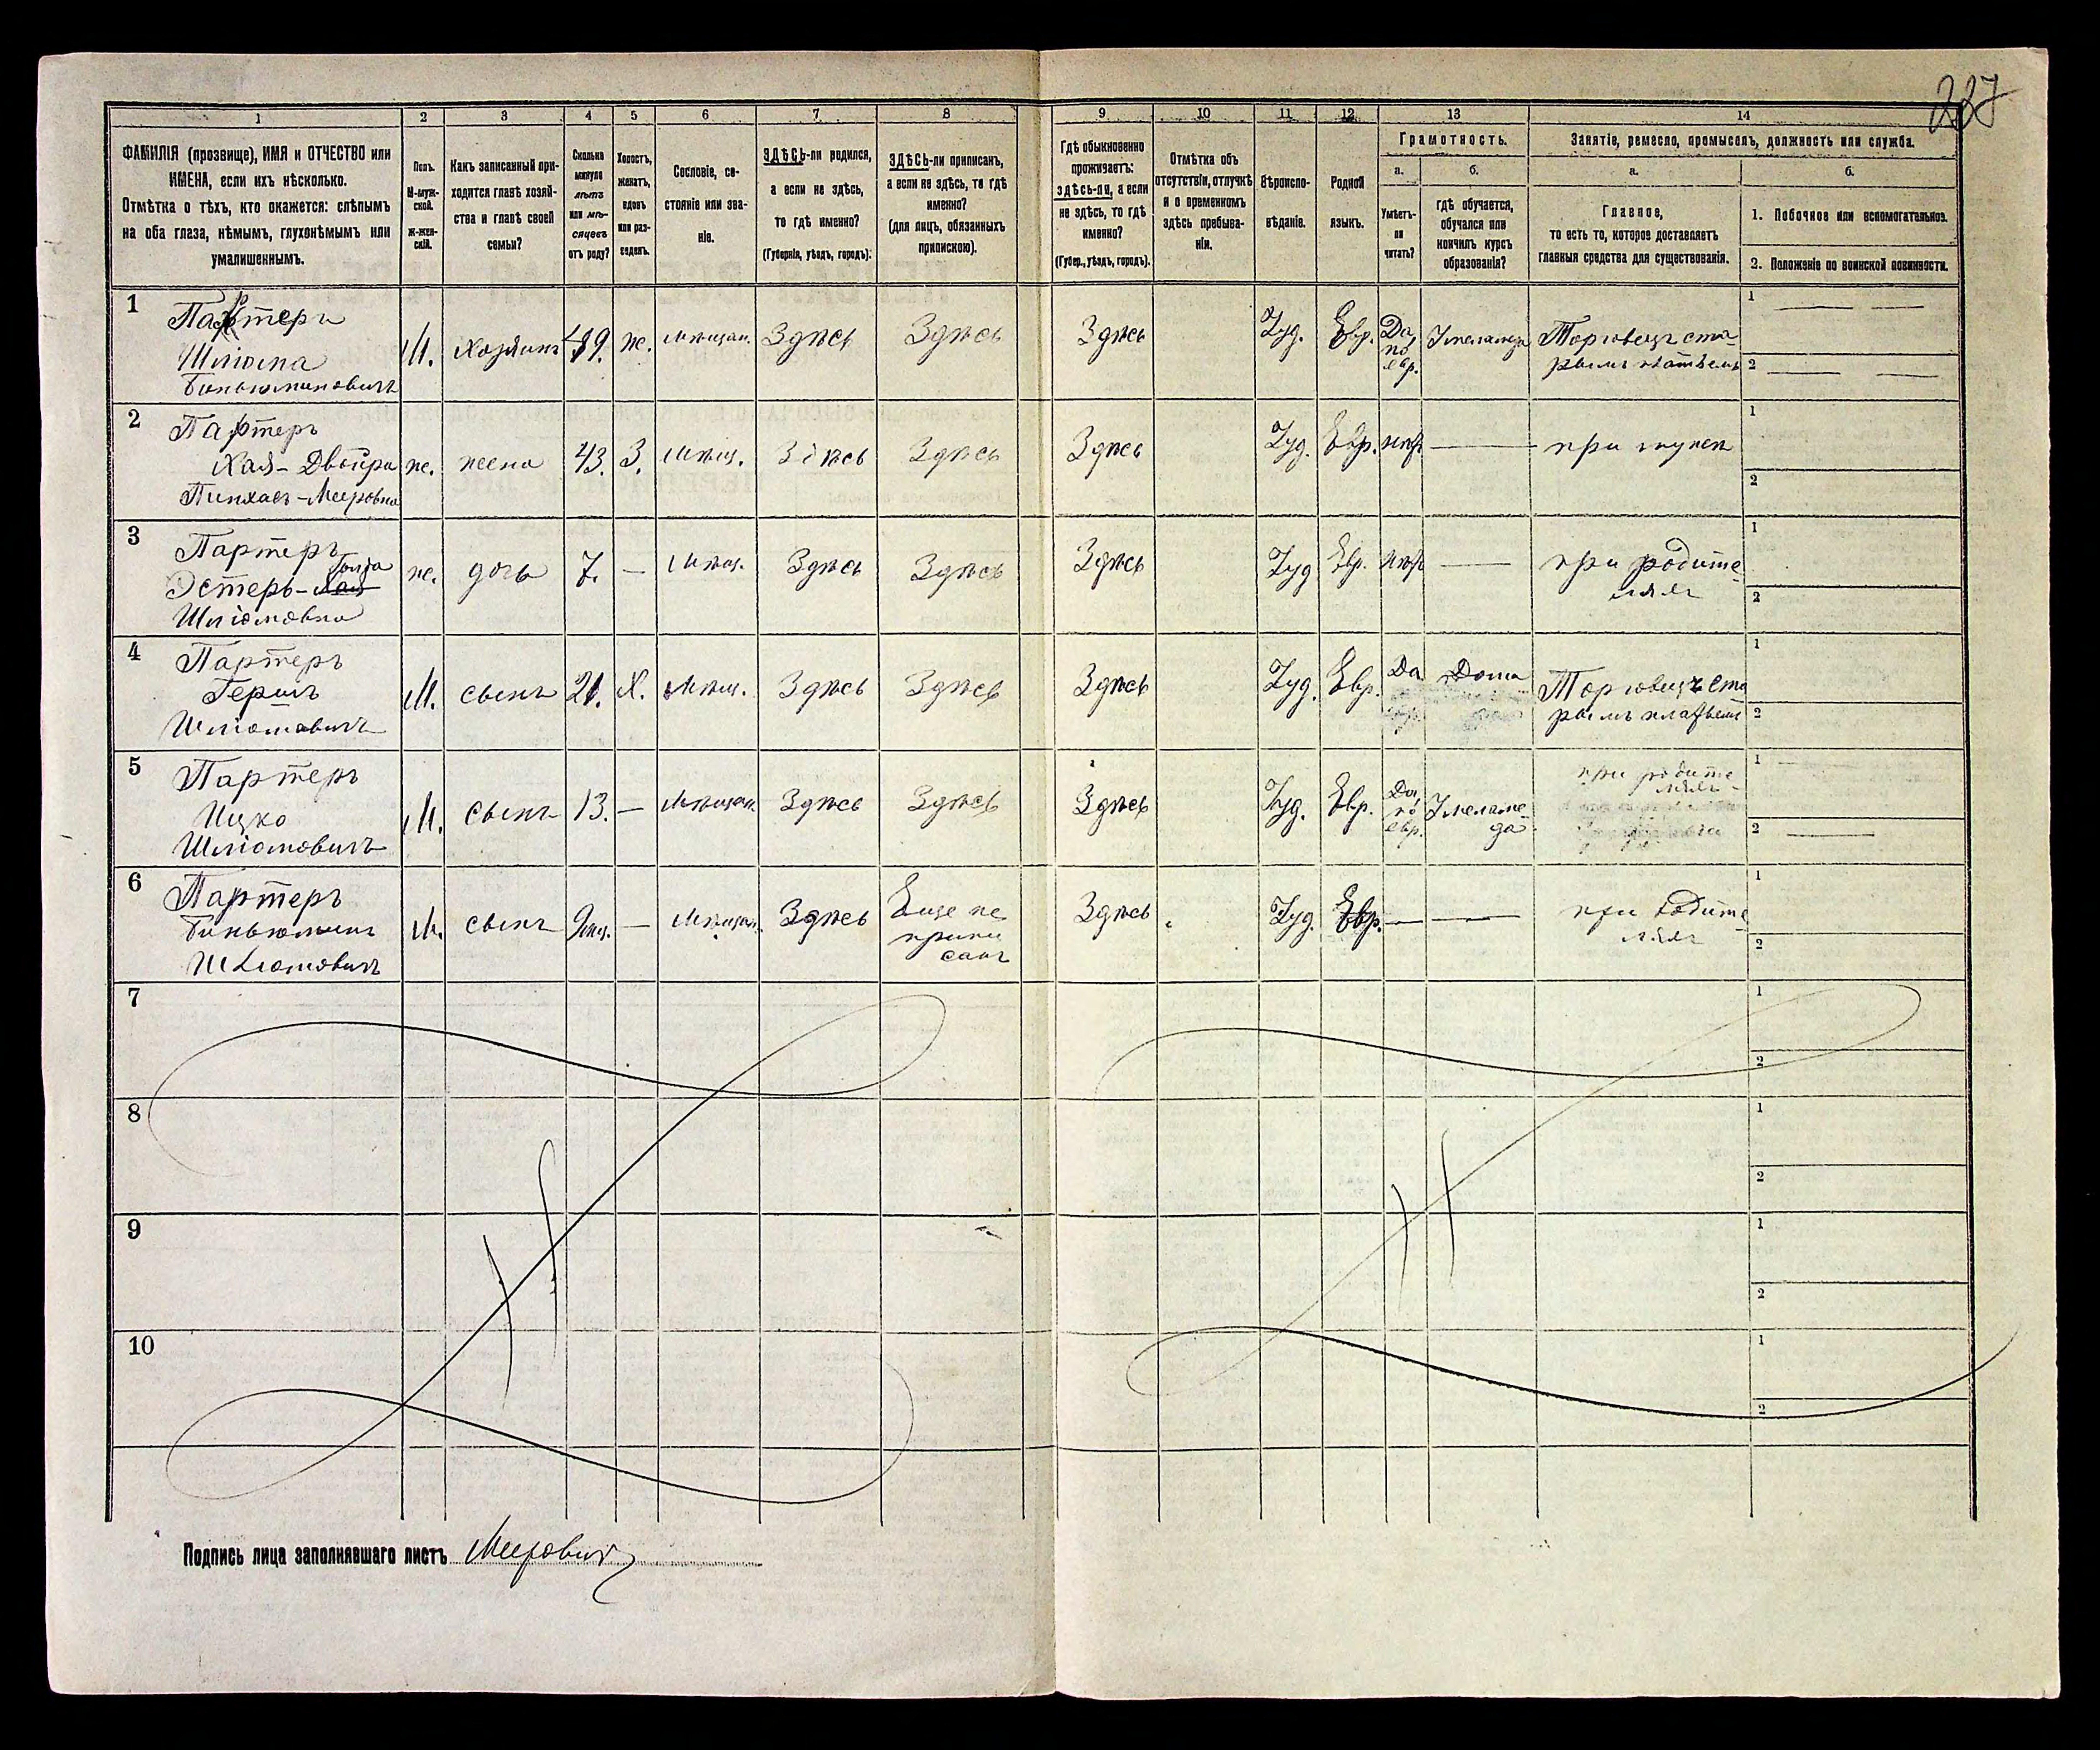 227
1 2 3 4 5 6 7 8 9 10 11 12 13 14
ФАМИЛІЯ (прозвище), ИМЯ и ОТЧЕСТВО или
ИМЕНА, если ихъ нѣсколько.
Отмѣтка о тѣхъ, кто окажется: слѣпымъ
на оба глаза, нѣмымъ, глухонѣмымъ или
умалишеннымъ.
Полъ.
М-муж-
ской.
Ж-жен-
скій.
Какъ записанный при-
ходится главѣ хозяй-
ства и главѣ своей
семьи?
Сколько
минуло
лѣтъ
или мѣ-
сяцевъ
отъ роду?
Холостъ,
женатъ,
вдовъ
или раз-
веденъ.
Сословіе, со-
стояніе или зва-
ніе.
ЗДѢСЬ-ли родился,
а если не здѣсь,
то гдѣ именно?
(Губернія, уѣздъ, городъ).
ЗДѢСЬ-ли приписанъ,
а если не здѣсь, то гдѣ
именно?
(для лицъ, обязанныхъ
припискою).
Гдѣ обыкновенно
проживаетъ:
здѣсь-ли, а если
не здѣсь, то гдѣ
именно?
(Губер., уѣздъ, городъ).
Отмѣтка объ
отсутствіи, отлучкѣ
и о временномъ
здѣсь пребыва-
ніи.
Вѣроиспо-
вѣданіе.
Родной
языкъ.
Грамотность.
а.
Умѣетъ-
ли
читать?
б.
гдѣ обучается,
обучался или
кончилъ курсъ
образованія?
Занятіе, ремесло, промыселъ, должность или служба.
а.
Главное,
то есть то, которое доставляетъ
главныя средства для существованія.
б.
1. Побочное или вспомогательное.
2. Положеніе по воинской повинности.
1
Партеръ
Шліома
Биньюминовичъ
М. Хозяинъ 49. ж. мѣщан. Здѣсь Здѣсь Здѣсь Іуд. Евр. Да по евр. У меламеда
Торговецъ ста-
рымъ платьемъ
1
2
2
Партеръ
Хая-Двойра
Пинхасъ-Мееровна
ж. жена 43. З. мѣщ. Здѣсь Здѣсь Здѣсь Іуд. Евр. нѣтъ — при мужѣ
1
2
3
Партеръ
Голда
Эстеръ-Хая
Шліомовна
ж. дочь 7. — мѣщ. Здѣсь Здѣсь Здѣсь Іуд Евр. нѣтъ — при родите-
ляхъ
1
2
4
Партеръ
Гершъ
Шліомовичъ
М. сынъ 21. Х. мѣщ. Здѣсь Здѣсь Здѣсь Іуд. Евр. Да Дома
Торговецъ ста
рымъ платьемъ
1
2
5
Партеръ
Ицко
Шліомовичъ
М. сынъ 13. — мѣщан. Здѣсь Здѣсь Здѣсь Іуд. Евр. Да, по евр. У меламе-
да
при родите
ляхъ
1
2
6
Партеръ
Биньюминъ
Шліомовичъ
М. сынъ 9 мѣс. — мѣщан. Здѣсь Еще не
припи
санъ
Здѣсь Іуд. Евр. — — при родите
ляхъ
1
2
7
1
2
8
1
2
9
1
2
10
1
2
Подпись лица заполнявшаго листъ Мееровичъ